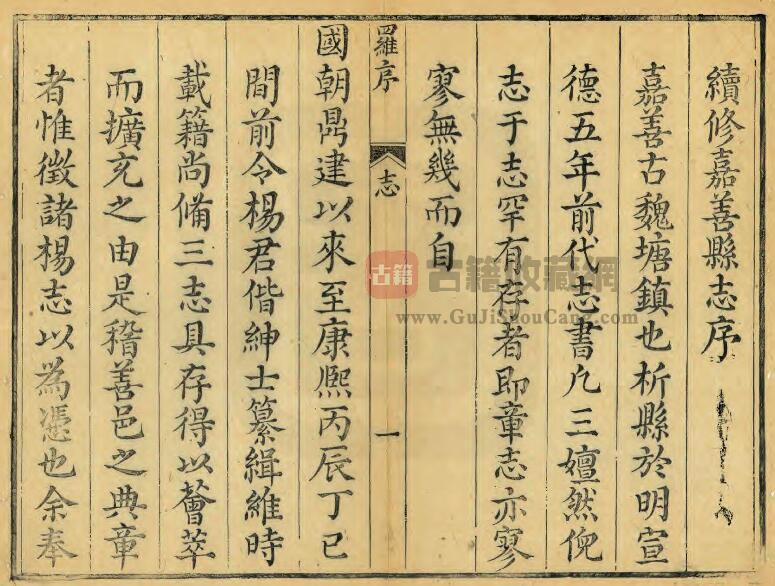 續修嘉善縣志序
嘉善古魏塘鎮也析縣於明宣
德五年前代志書凡三嬗然俛
志于志罕有存者即章志亦寥
寥無幾而自
羅序
志
一
國朝鼎建以來至康熙丙辰丁巳
間前令楊君偕紳士纂緝維時
載籍尚備三志具存得以薈萃
而擴充之由是稽善邑之典章
者惟徵諸楊志以為憑也余奉
古籍
古籍收藏網
www.GuJiShouCang.com